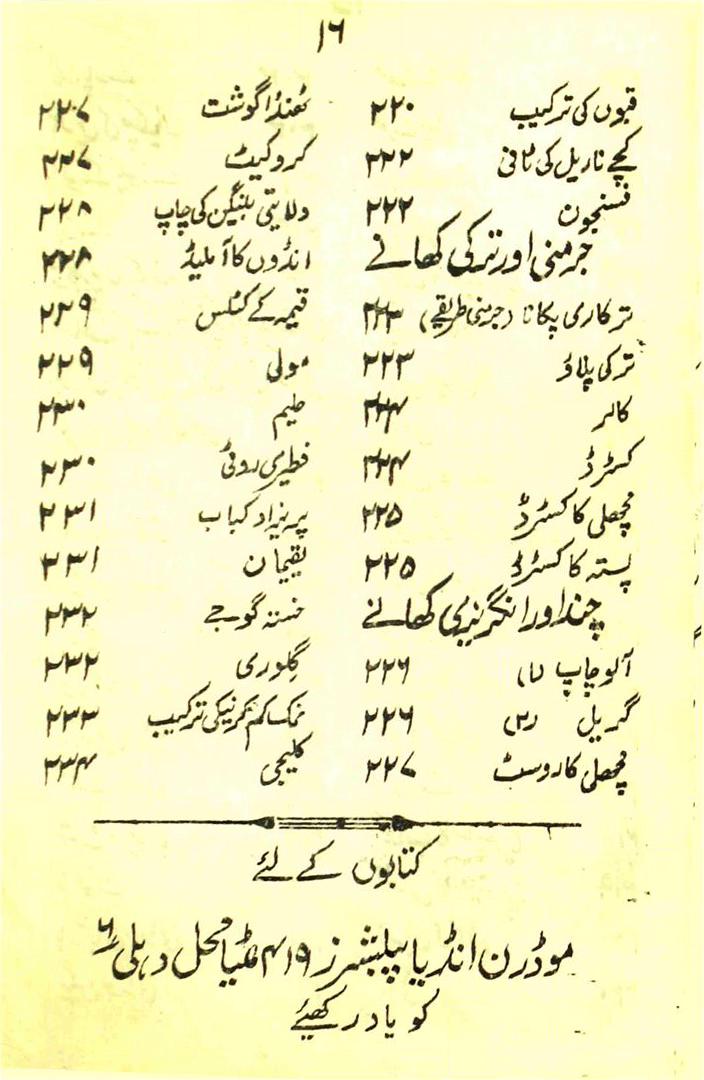 ۱۶
قبوں کی ترکیب ۲۲۰
کچے ناریل کی ٹافی ۲۲۲
فسنجون ۲۲۲
جرمنی اور ترکی کھانے
ترکاری پکانا (جرمنی طریقے) ۲۲۳
ترکی پلاؤ ۲۲۳
کالر ۲۲۴
کسٹرڈ ۲۲۴
مچھلی کا کسٹرڈ ۲۲۵
پستہ کا کسٹرڈ ۲۲۵
چند اور انگریزی کھانے
آلو چاپ (۱) ۲۲۶
گریل (۲) ۲۲۶
مچھلی کا روسٹ ۲۲۷
ٹھنڈا گوشت ۲۲۷
کروکیٹ ۲۲۷
ولایتی بینگن کی چاپ ۲۲۸
انڈوں کا آملیڈ ۲۲۸
قیمہ کے کٹلس ۲۲۹
مولی ۲۲۹
حلیم ۲۳۰
فطیری روٹی ۲۳۰
پریزاد کباب ۲۳۱
یقیمان ۲۳۱
خستہ گوجے ۲۳۲
گلوری ۲۳۲
نمک کم کرنیکی ترکیب ۲۳۳
کلیجی ۲۳۴
کتابوں کے لئے
موڈرن انڈیا پبلیشرز ۴۱۹ مٹیا محل دہلی ۶
کو یاد رکھیئے